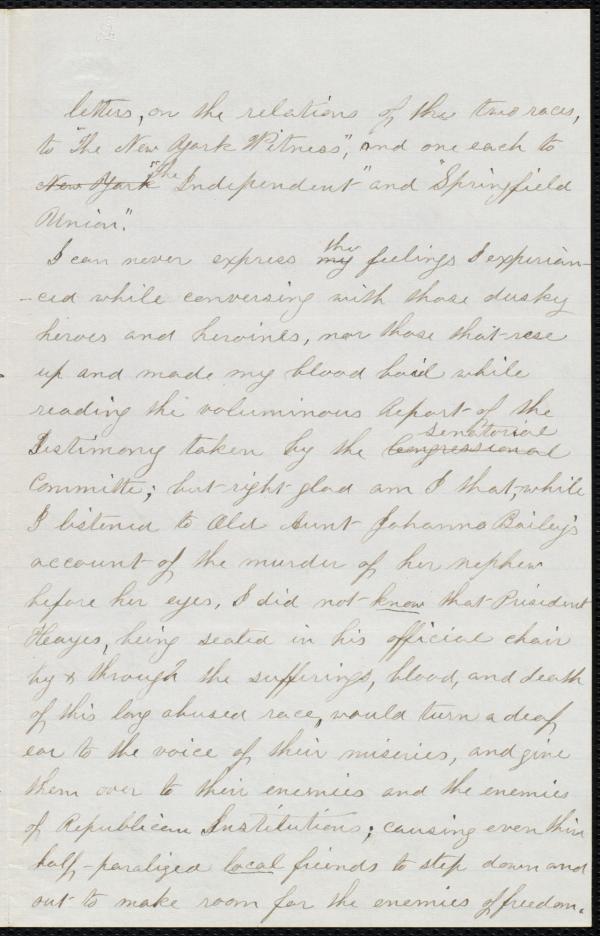 letters, on the relations of the two races,
to "The New York Witness", and one each to
New York "The Independent" and "Springfield
Union".
I can never express my the feelings I experian-
-ced while conversing with those dusky
heroes and heroines, nor those that rose
up and made my blood boil while
reading the voluminous Report of the
Testimony taken by the Congressional Senatorial
Committe; but right glad am I that, while
I listened to Old Aunt Johanna Bailey's
account of the murder of her nephew
before her eyes, I did not know that President
Heayes, being seated in his official chair
by & through the sufferings, blood, and death
of this long abused race, would turn a deaf
ear to the voice of their miseries, and give
them over to their enemies and the enemies
of Republican Institutions; causing even their
half-paralized local friends to step down and
out to make room for the enemies of freedom.